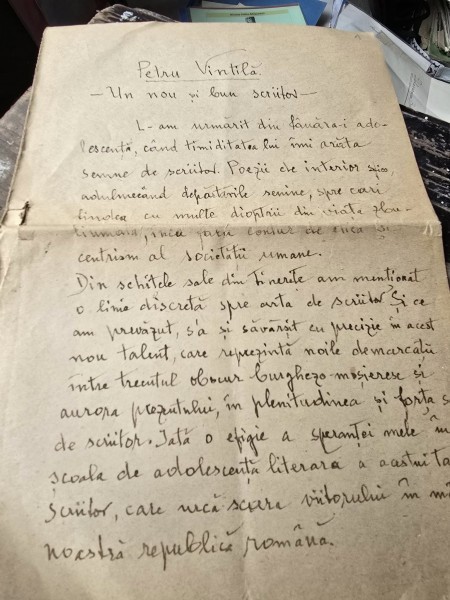 Petru Vintilă.
— Un nou și bun scriitor —
L-am urmărit din făura-i ado-
lescență, când timiditatea lui îmi arăta
semne de scriitor. Poezii de interior
adulmecând depărtările senine, spre cari
cu multe dioptrii din viața
contur de etica și
centrism al societății umane.
Din schițele sale din tinerețe am menționat
o linie discretă spre arta de scriitor Și ce
am prevăzut, s'a și săvârșit cu precizie în acest
nou talent, care reprezintă noile demarcații
între trecutul obscur burghezo-moșieresc și
aurora prezentului, în plenitudinea și forța
de scriitor. Iată o efigie a speranței mele în
școala de adolescență literara a acestui
scriitor, care urcă scara viitorului în
noastră republică română.